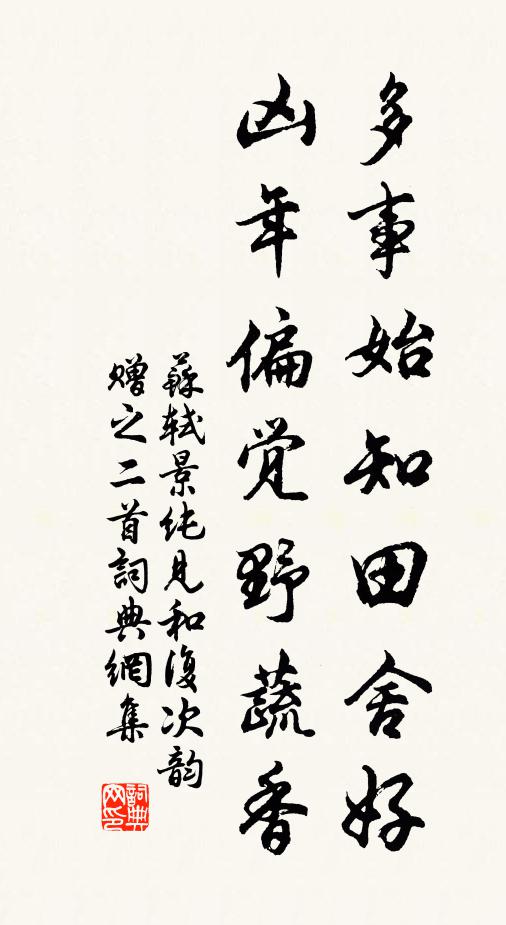 多事始知田舍好
凶年偏觉野蔬香
蘇軾景纯见和復次韵
赠之二首詞典網集
詞典网印